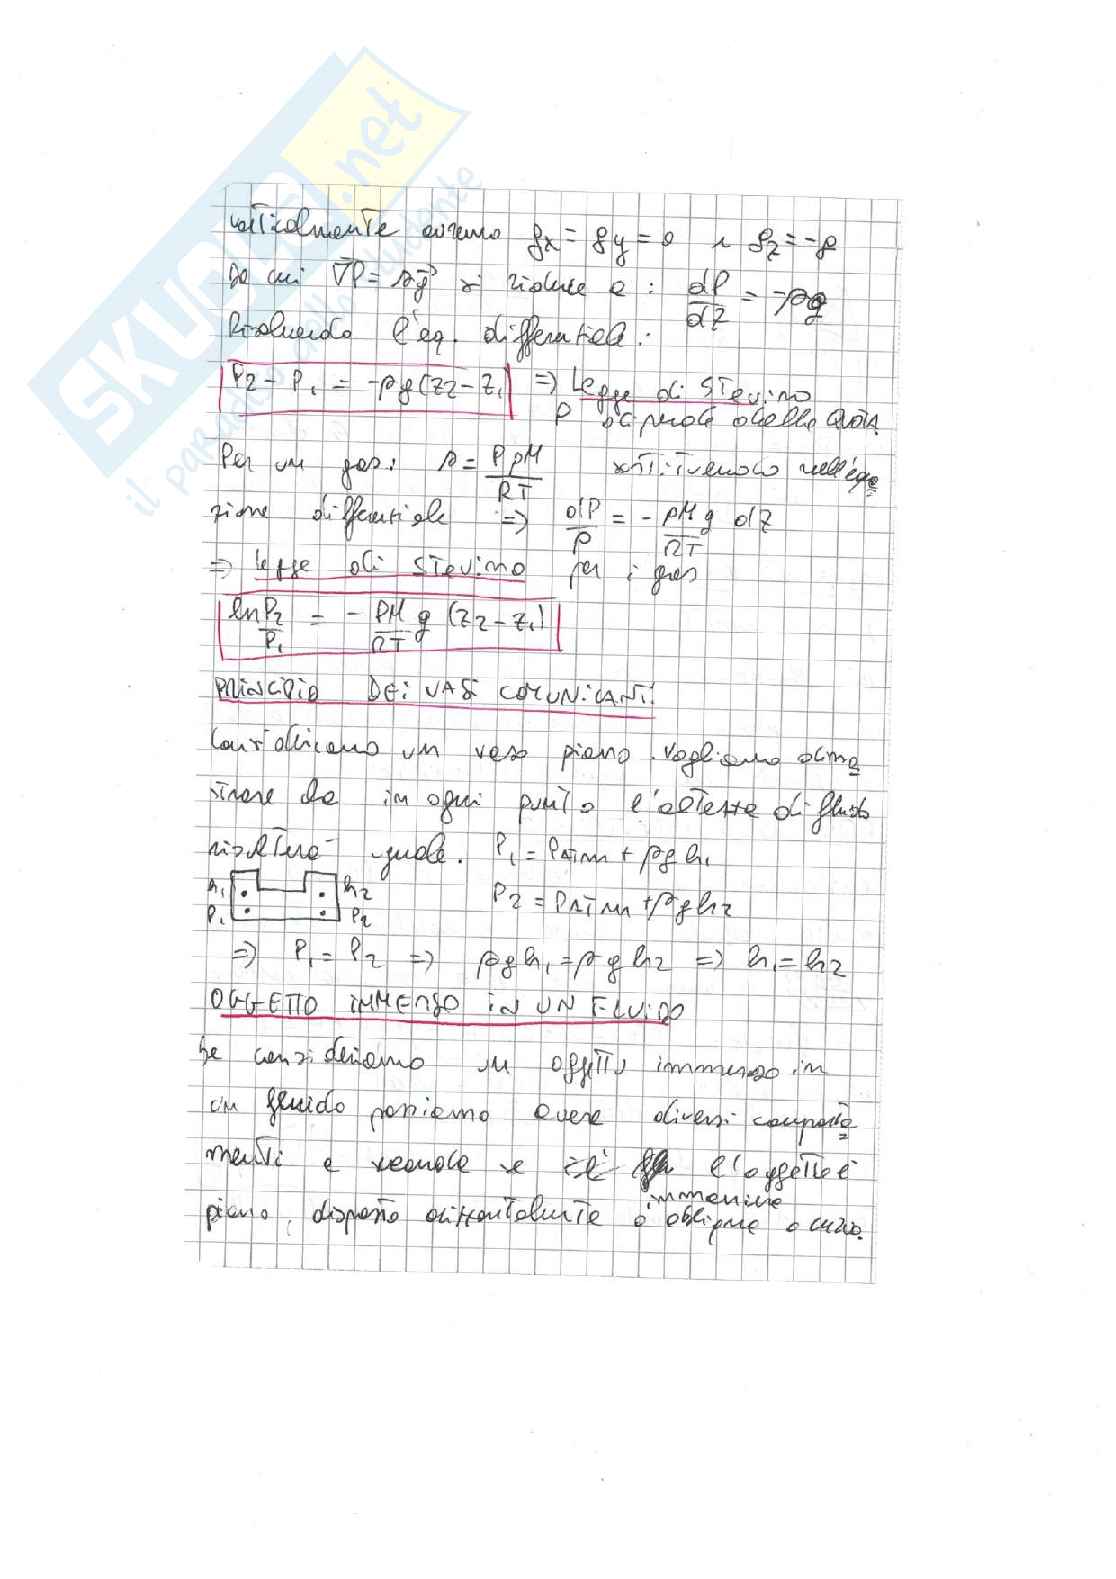 SKUOLA.net
il paradiso dello studente
verticalmente avremo gx = gy = 0 e gz = -g
Da cui ∇P = ρg si riduce a: dP/dz = -ρg
Risolvendo l'eq. differenziale:
P2 - P1 = -ρg(z2 - z1) => Legge di Stevino
P dipende dalla
Per un gas: ρ = P pM/RT sostituendolo nell'equa
zione differenziale => dP/P = - pM/RT g dz
=> legge di Stevino per i gas
ln P2/P1 = - PM/RT g (z2 - z1)
PRINCIPIO DEI VASI COMUNICANTI
Consideriamo un vaso pieno. Vogliamo dimo
strare che in ogni punto l'altezza di fluido
risulterà uguale. P1 = Patm + ρgh1
h1 h2 P2 = Patm + ρgh2
P1 P2
=> P1 = P2 => ρgh1 = ρgh2 => h1 = h2
OGGETTO IMMERSO IN UN FLUIDO
Se consideriamo un oggetto immerso in
un fluido possiamo avere diversi comporta
menti a seconda se l'oggetto è
piano, disposto orizzontalmente o obliquo o curvo.